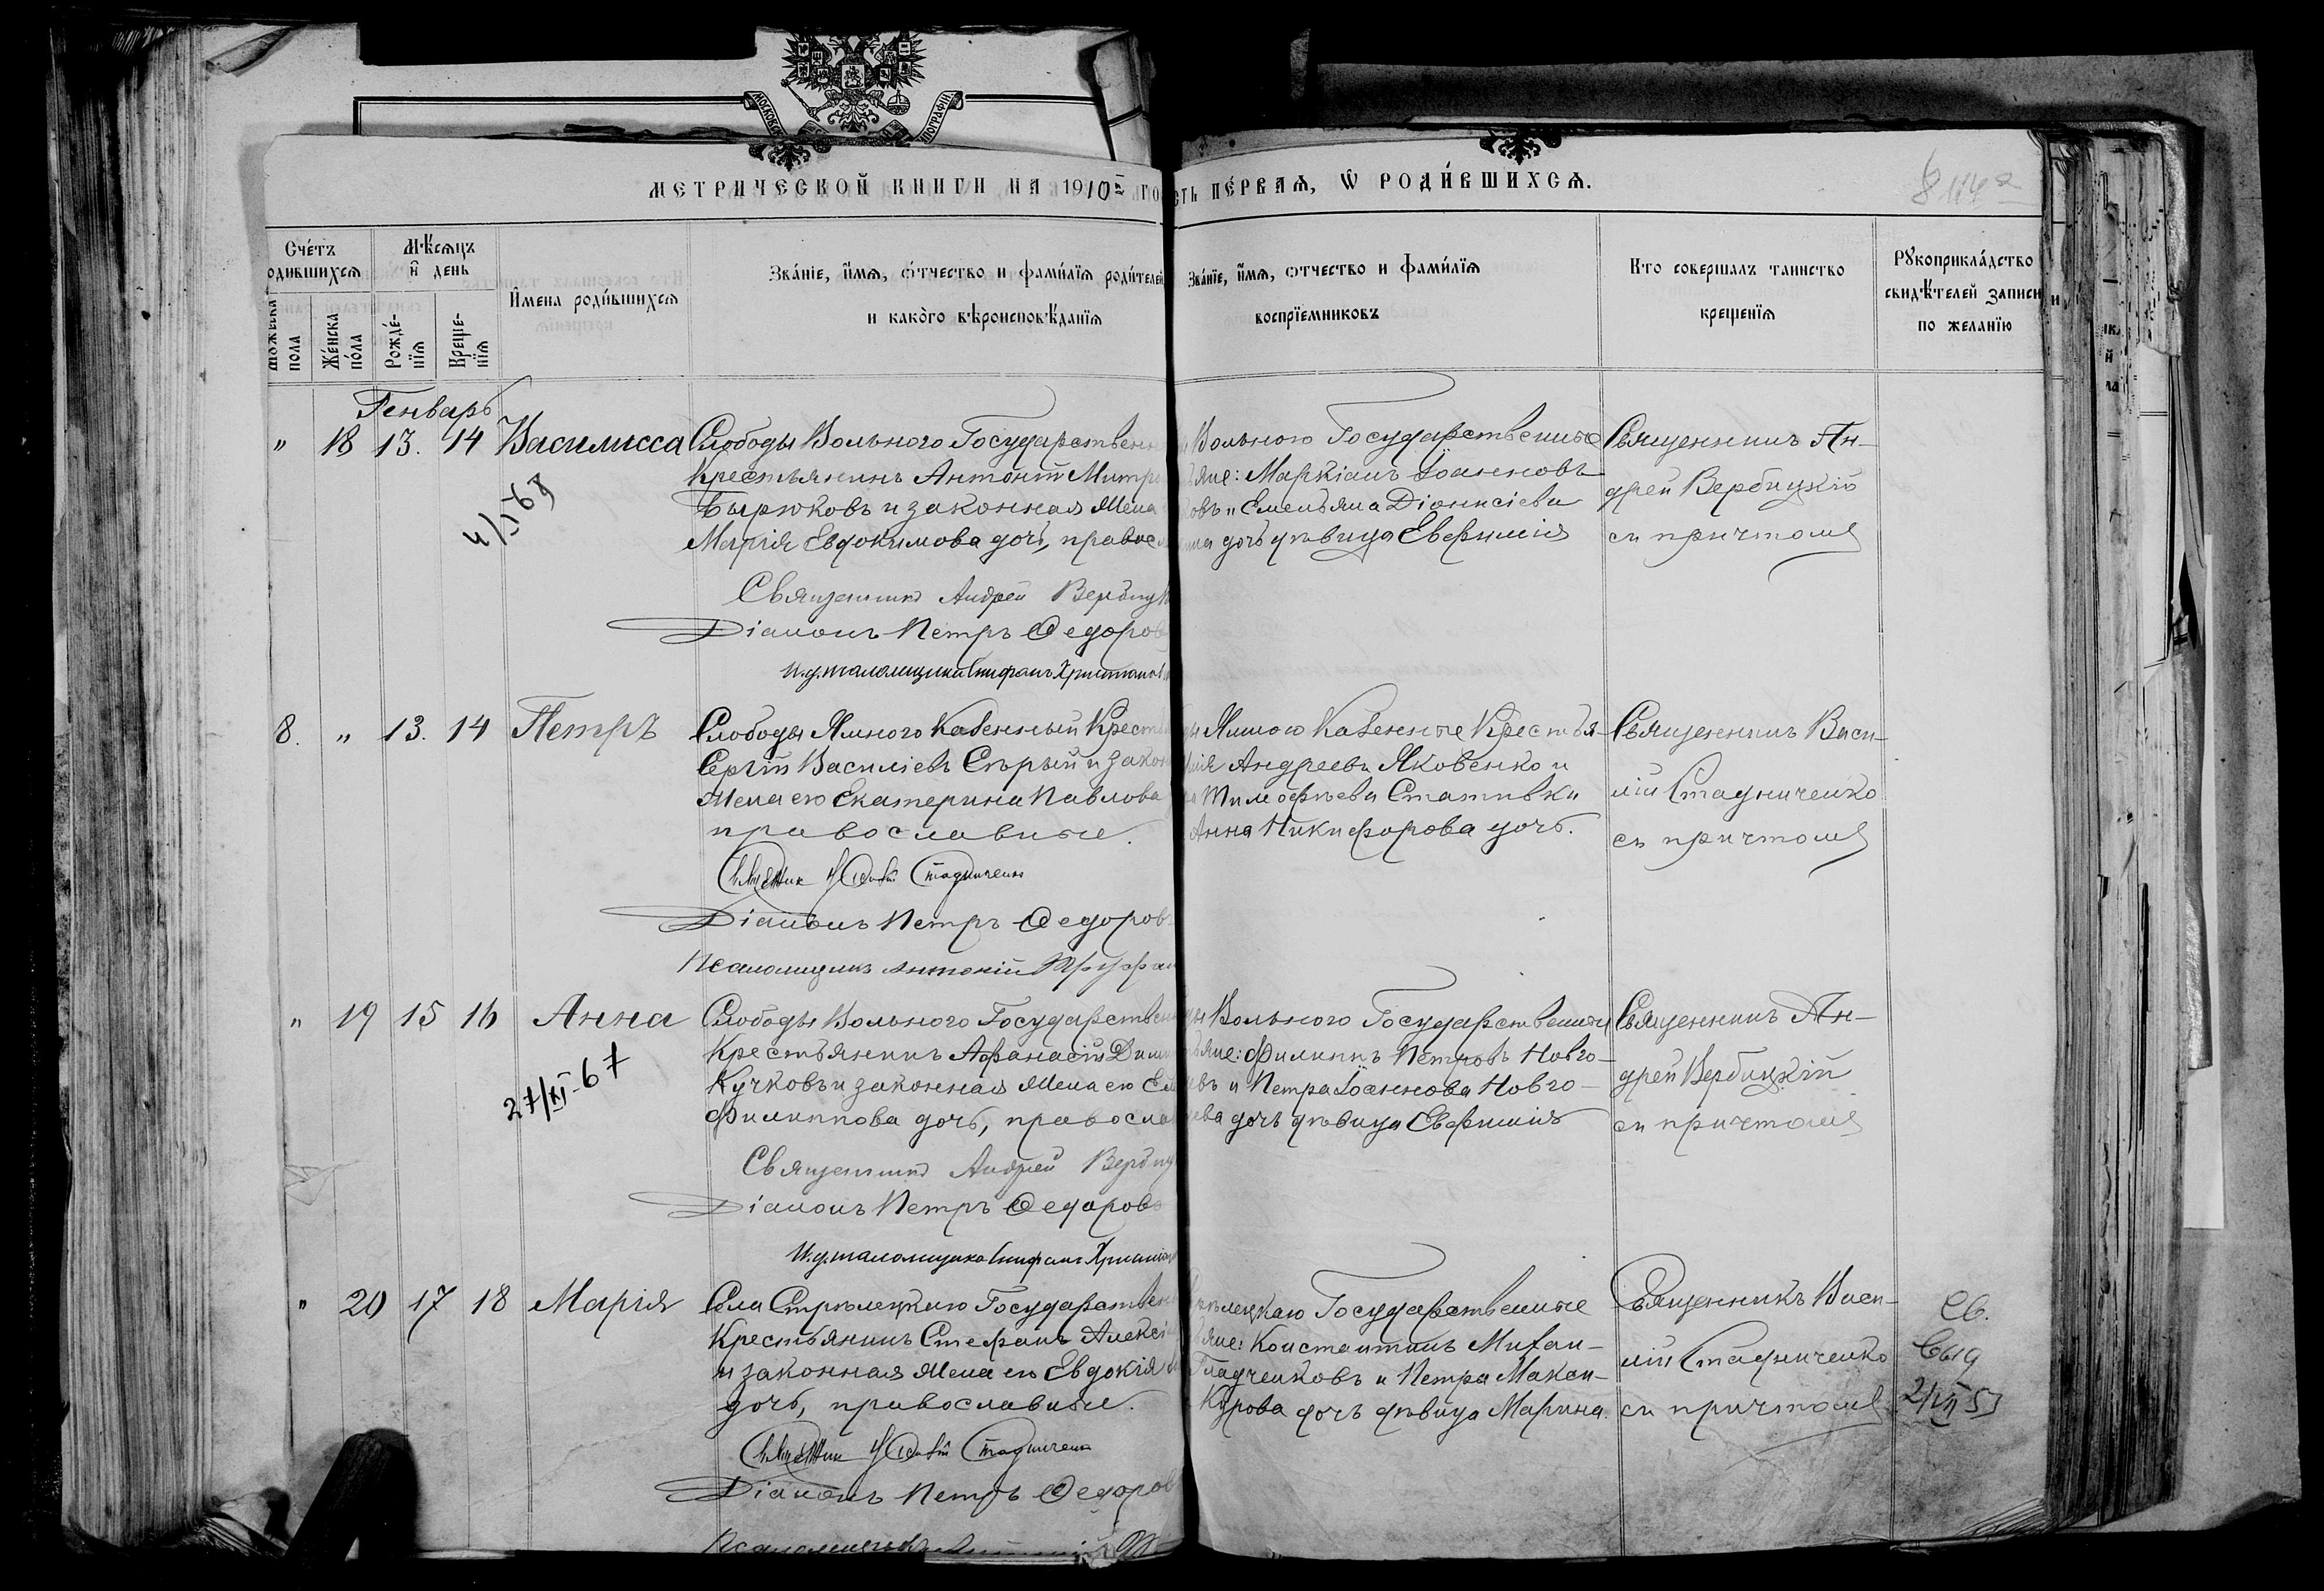 МЕТРИЧЕСКОЙ КНИГИ НА 1910й ГО
СТЬ ПЕ́РВАѦ, Ѿ РОДИ́ВШИХСѦ.
Счéтъ
одившихсѧ
Мѣ́сѧцъ
и день
Имена роди́вшихсѧ
Звáнїе, и́мѧ, ѻ́тчество и фами́лїѧ роди́телей
и какóго вѣроисповѣ́данїѧ
Звáнїе, и́мѧ, ѻтчество и фами́лїѧ
воспрїемниковъ
Кто совершалъ таинство
крещенїѧ
Рꙋкоприклáдство
свидѣ́телей записи
по желанїю
пола
Жéнска
пóла
Рождé-
нїѧ
Креще-
нїѧ
Генварь
" 18 13. 14 Василисса
Слободы Вольного Государствен
Крестьянинъ Антоній Митр
Бирюковъ и законная жена
Марія Евдокимова дочь, правос
Священникъ Андрей Вербицк
Діаконъ Петръ Ѳедоров
Вольного Государственные
яне: Маркіанъ Іоанновъ
овъ и Емельяна Діонисіева
дочь дѣвица Евфимія
Священникъ Ан-
дрей Вербицкій
съ причтомъ
8. " 13. 14 Петръ
Слободы Ямного Казенный Крест
Сергій Василіевъ Сѣрый и закон
жена его Екатерина Павлова
православные.
Священник Василій Стадниченко
Діаконъ Петръ Ѳедоров
Псаломщикъ Антоній Труфан
Ямного Казенные Крестья-
Андреевъ Яковенко и
Тимофѣева Стативки
Анна Никифорова дочь.
Священникъ Васи-
лій Стадниченко
съ причтомъ
" 19 15 16 Анна
27/XI-67
Слободы Вольного Государствен
Крестьянинъ Аѳанасій Дими
Кучковъ и законная жена его
Филиппова дочь, правосла
Священникъ Андрей Вербиц
Діаконъ Петръ Ѳедоровъ
Вольного Государственные
яне: Филиппъ Петровъ Новго-
въ и Петра Іоаннова Новго-
ева дочь дѣвица Евфимія
Священникъ Ан-
дрей Вербицкій
съ причтомъ
" 20 17 18 Марія
Села Стрѣлецкаго Государствен
Крестьянинъ Стефанъ Алексі
и законная жена его Евдокія
дочь, православные.
Священник Василій Стадниченко
Діаконъ Петръ Ѳедоров
лецкаго Государственные
яне: Константинъ Михаи-
Гладченковъ и Петра Макси-
Курова дочь дѣвица Марина.
Священникъ Васи-
лій Стадниченко
съ причтомъ
Св.